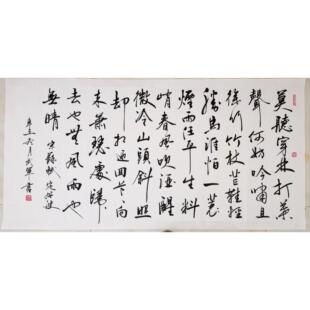 莫聽穿林打葉
聲何妨吟嘯且
徐行竹杖芒鞋輕
勝馬誰怕一蓑
煙雨任平生料
峭春風吹酒醒
微冷山頭斜照
却相迎回首向
来蕭瑟處歸
去也無風雨也
無晴 宋蘇軾定風波
辛丑 月 書